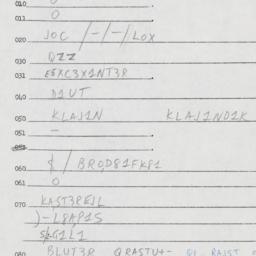 010 0
011 0
020 JOC /-/-/LOX
030 QZZ
031 EEXC3X1NT3R
040 D1UT
050 KLAJ1N KLAJ1ND1K
051 -
060 &/BROD81FK81
061 0
070 KAST3REJL
)-L8AP1S
G1L1
080 BLUT3R QRASTU+-